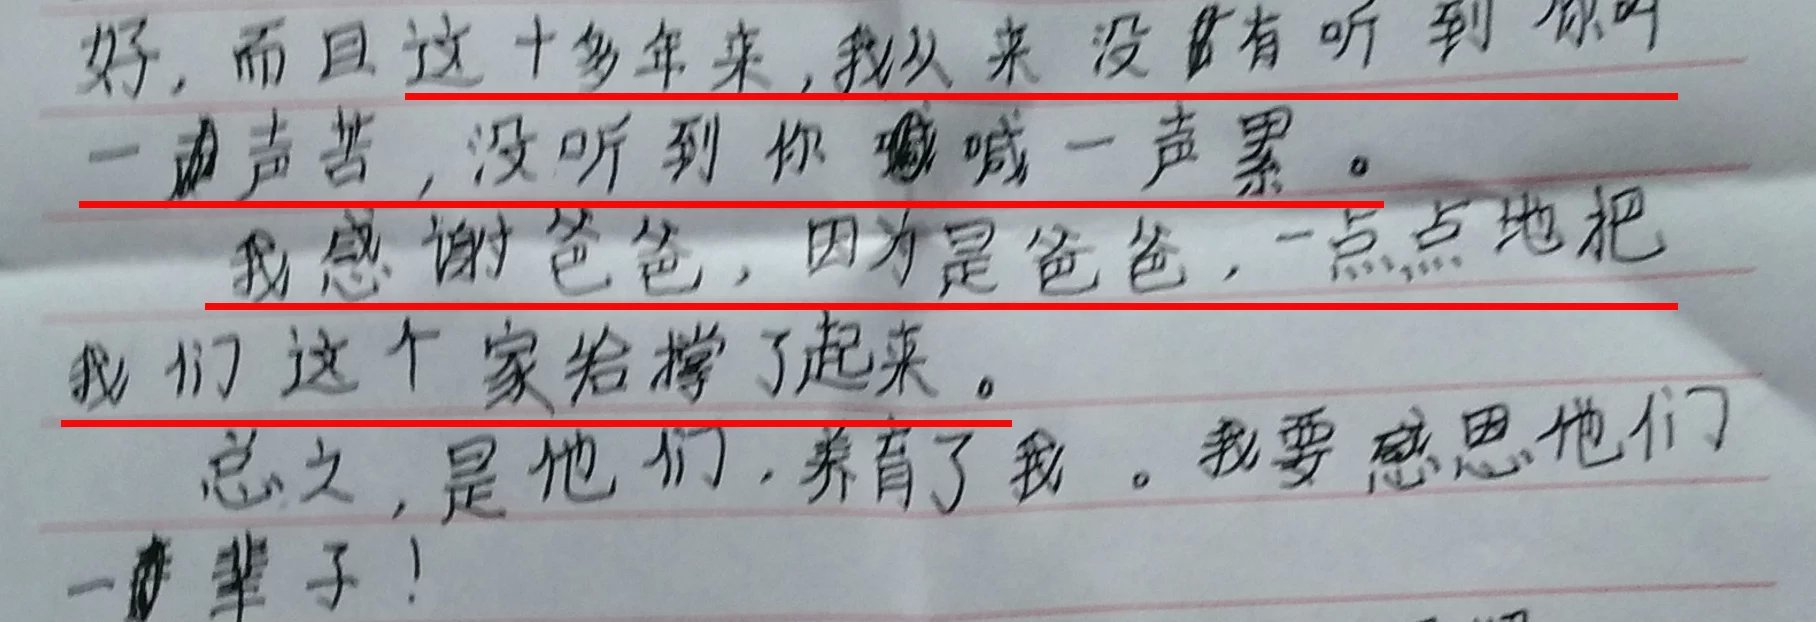 好，而且这十多年来，我从来没有听到你叫
一声苦，没听到你喊一声累。
我感谢爸爸，因为是爸爸，一点点地把
我们这个家给撑了起来。
总之，是他们，养育了我。我要感恩他们
一辈子！